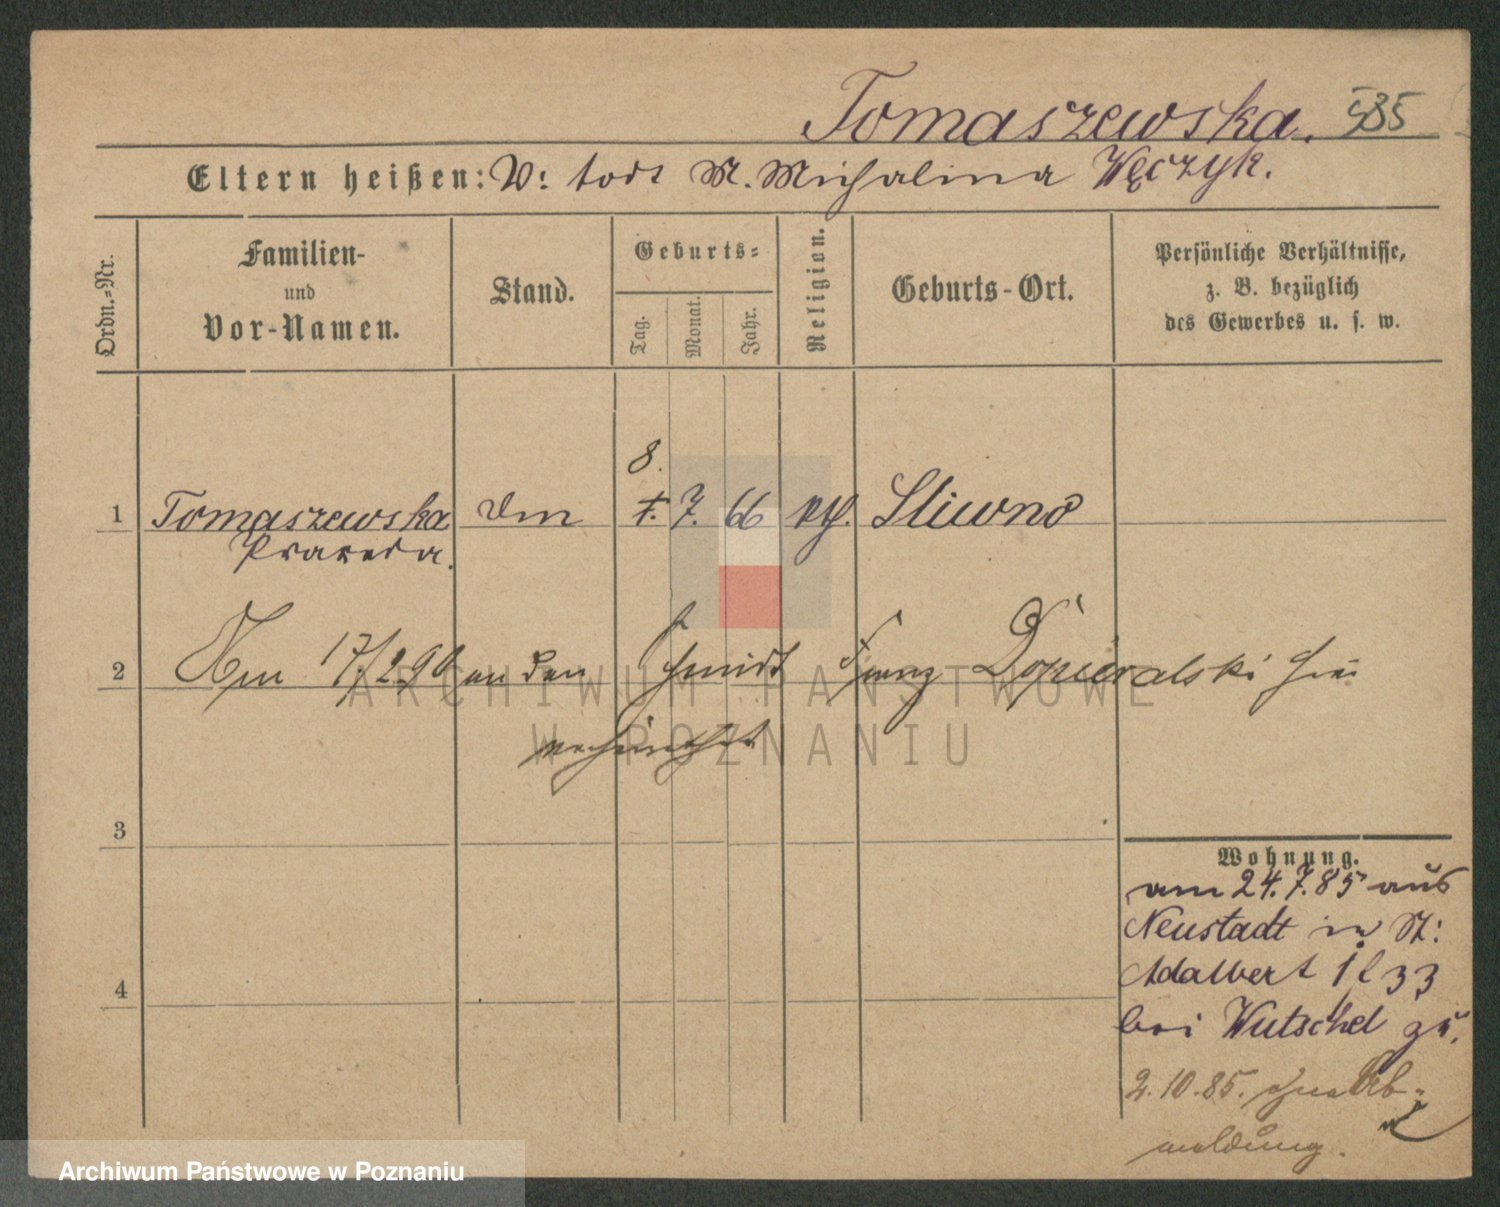 Tomaszewska. 85
Eltern heißen: V: todt M. Michalina Węczyk.
Ordn.-Nr.
Familien-
und
Vor-Namen.
Stand.
Geburts-
Tag.
Monat.
Jahr.
Religion.
Geburts-Ort.
Persönliche Verhältnisse,
z. B. bezüglich
des Gewerbes u. s. w.
8.
1 Tomaszewska 7. 7. 66 kth. Sliwno
Praxeda.
2 Am 17/2 90 an den Schmidt Franz Dopieralski hier
verheirathet
3
4
Wohnung.
am 24.7.85 aus
Neustadt in St:
Adalbert 1 l 33
bei Wutschel zu.
2.10.85. ohne Ab-
meldung.
ARCHIWUM PAŃSTWOWE
W POZNANIU
Archiwum Państwowe w Poznaniu